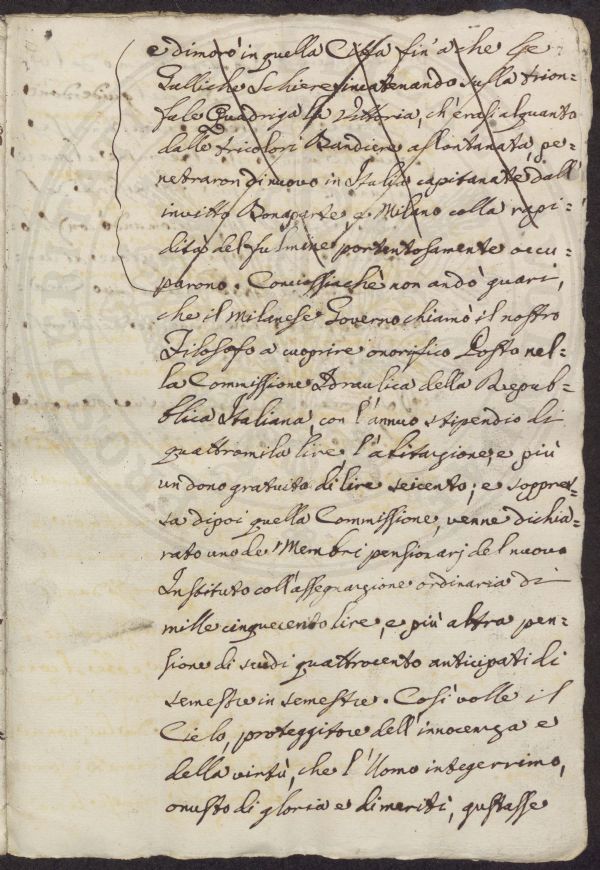 e dimorò in quella Città fin'a che le
Galliche Schiere incatenando sulla trion=
fale Quadriga la Vittoria, ch'erasi alquanto
dalle tricolori Bandiere allontanata, pe=
netraron di nuovo in Italia capitanate dall'
invitto Bonaparte e Milano colla rapi=
dità del fulmine portentosamente occu=
parono. Conciossiachè non andò guari,
che il Milanese Governo chiamò il nostro
Filosofo a cuoprire onorifico Posto nel=
la Commissione Idraulica della Repub=
blica Italiana, con l'annuo stipendio di
quattromila lire l'abitazione, e più
un dono gratuito di lire seicento; e soppres=
sa dipoi quella Commissione, venne dichia=
rato uno de' Membri pensionarj del nuovo
Instituto coll'assegnazione ordinaria di
mille cinquecento lire, e più altra pen=
sione di scudi quattrocento anticipati di
semestre in semestre. Così volle il
Cielo, proteggitore dell'innocenza e
della virtù, che l'Uomo integerrimo,
onusto di gloria e di meriti, gustasse